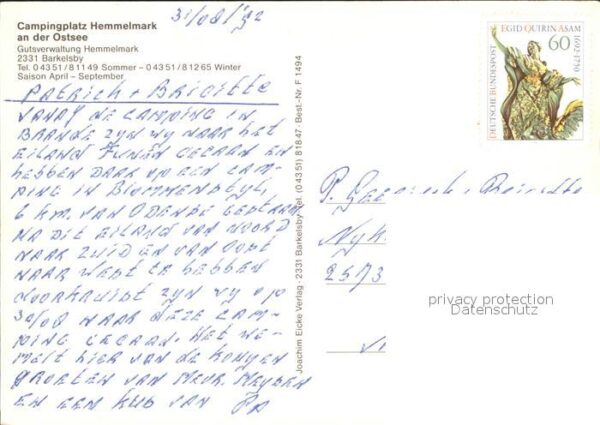 Campingplatz Hemmelmark
an der Ostsee
Gutsverwaltung Hemmelmark
2331 Barkelsby
Tel. 0 43 51 / 8 11 49 Sommer – 0 43 51 / 8 12 65 Winter
Saison April – September
31/08/'92
PATRICH + BRIGITTE
VANAF DE CAMPING IN
BRANDE ZYN WY NAAR HET
EILAND FUNEN GEGAAN EN
HEBBEN DAAR OP EEN CAM-
PING IN BLOMMENSLYST,
6 KM. VAN ODENSE GESTAAN
NA DIT EILAND VAN NOORD
NAAR ZUID EN VAN OOST
NAAR WEST TE HEBBEN
DOORKRUIST ZYN WY OP
30/08 NAAR DEZE CAM-
PING GEGAAN. HET WE-
MELT HIER VAN DE KONYNEN
GROETEN VAN MEVR. MEYDEN
EN EEN KUS VAN PA
Joachim Eicke Verlag · 2331 Barkelsby · Tel. (0 43 51) 818 47 · Best.-Nr. F 1494
EGID QUIRIN ASAM
1692-1750
60
DEUTSCHE BUNDESPOST
P.
Nyk
2573
privacy protection
Datenschutz